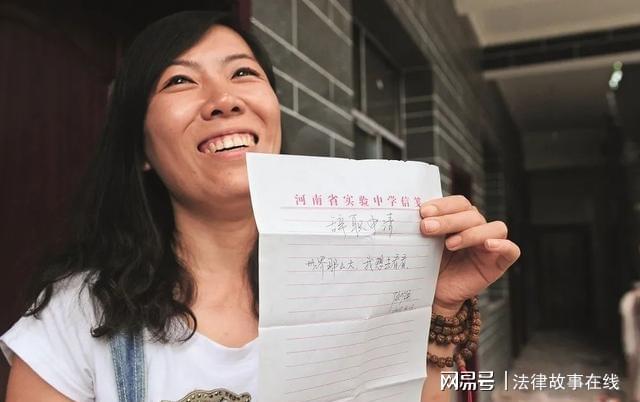 河南省实验中学信笺
辞职申请
世界那么大，我想去看看
网易号 | 法律故事在线